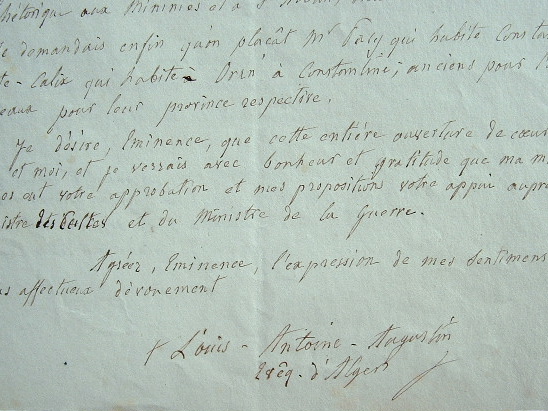 hétorique aux Minimes et à S
demandais enfin qu'on plaçât Mr Paly qui habite Constan
te-Calix qui habite Oran à Constantine; anciens pour l
eaux pour leur province respective.
Je désire, Eminence, que cette entière ouverture de cœur
et moi, et je verrais avec bonheur et gratitude que ma m
os ont votre approbation et mes propositions votre appui aupr
istre des Cultes et du Ministre de la Guerre.
Agréez, Eminence, l'expression de mes sentimens
us affectueux dévouement
+ Louis-Antoine-Augustin
Evêq. d'Alger